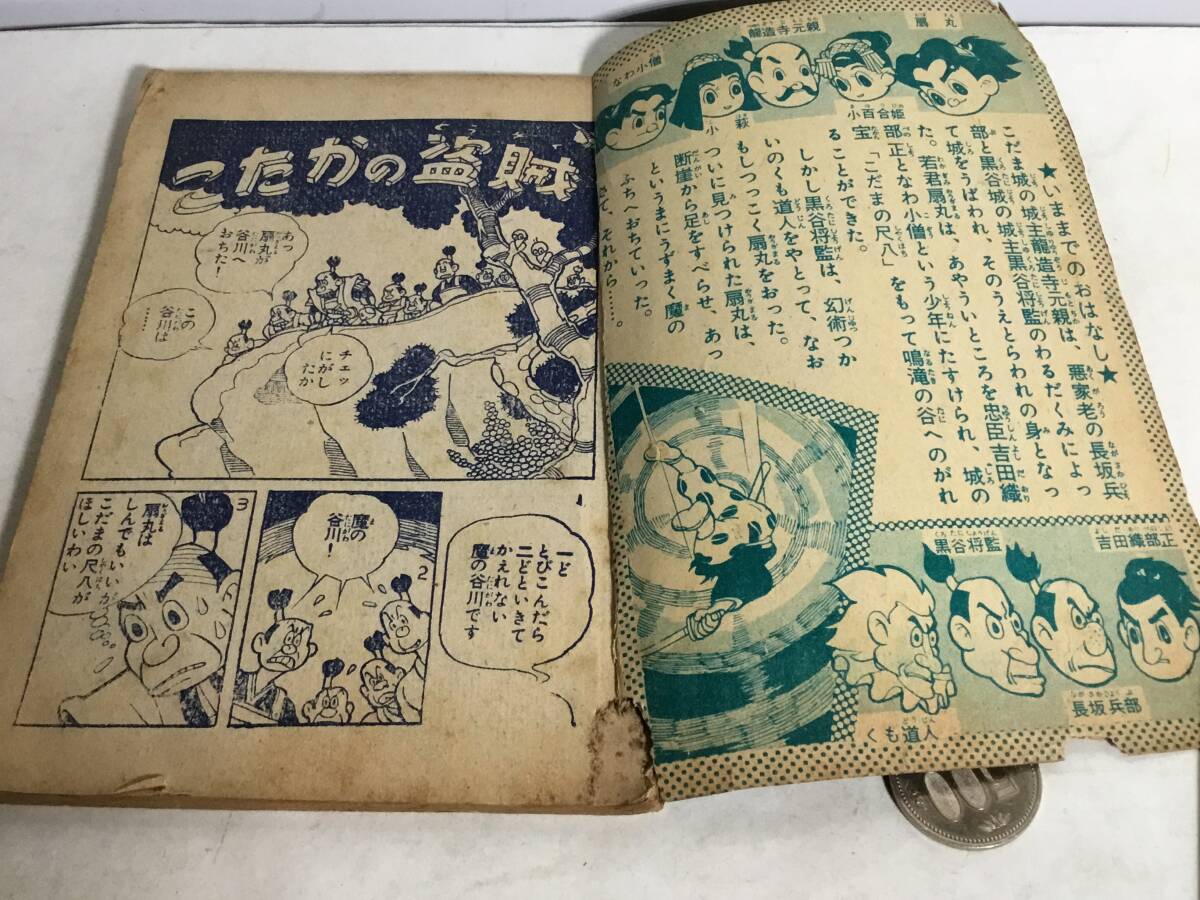 扇丸
龍造寺元親
なわ小僧
小百合姫
小萩
★いままでのおはなし★
こだま城の城主龍造寺元親は、悪家老の長坂兵
部と黒谷城の城主黒谷将監のわるだくみによっ
て城をうばわれ、そのうえとらわれの身となっ
た。若君扇丸は、あやういところを忠臣吉田織
部正となわ小僧という少年にたすけられ、城の
宝「こだまの尺八」をもって鳴滝の谷へのがれ
ることができた。
しかし黒谷将監は、幻術つか
いのくも道人をやとって、なお
もしつっこく扇丸をおった。
ついに見つけられた扇丸は、
断崖から足をすべらせ、あっ
というまにうずまく魔の
ふちへおちていった。
さて、それから……。
吉田織部正
黒谷将監
長坂兵部
くも道人
こたかの盗賊
あっ
扇丸が
谷川へ
おちた！
この
谷川は
……
チェッ
にがし
たか
1
一ど
とびこんだら
二どといきて
かえれない
魔の谷川です
2
魔の
谷川！
3
扇丸は
しんでもいいが
こだまの尺八が
ほしいわい